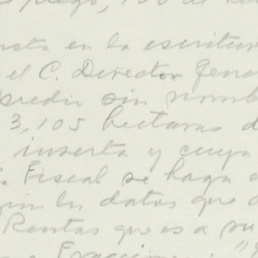 sta en la escritura
el C. Director Gene
predio sin nomb
3,105 hectaras d
inserta y cuya
. Fiscal se haga
los datos que
Rentas que es a su